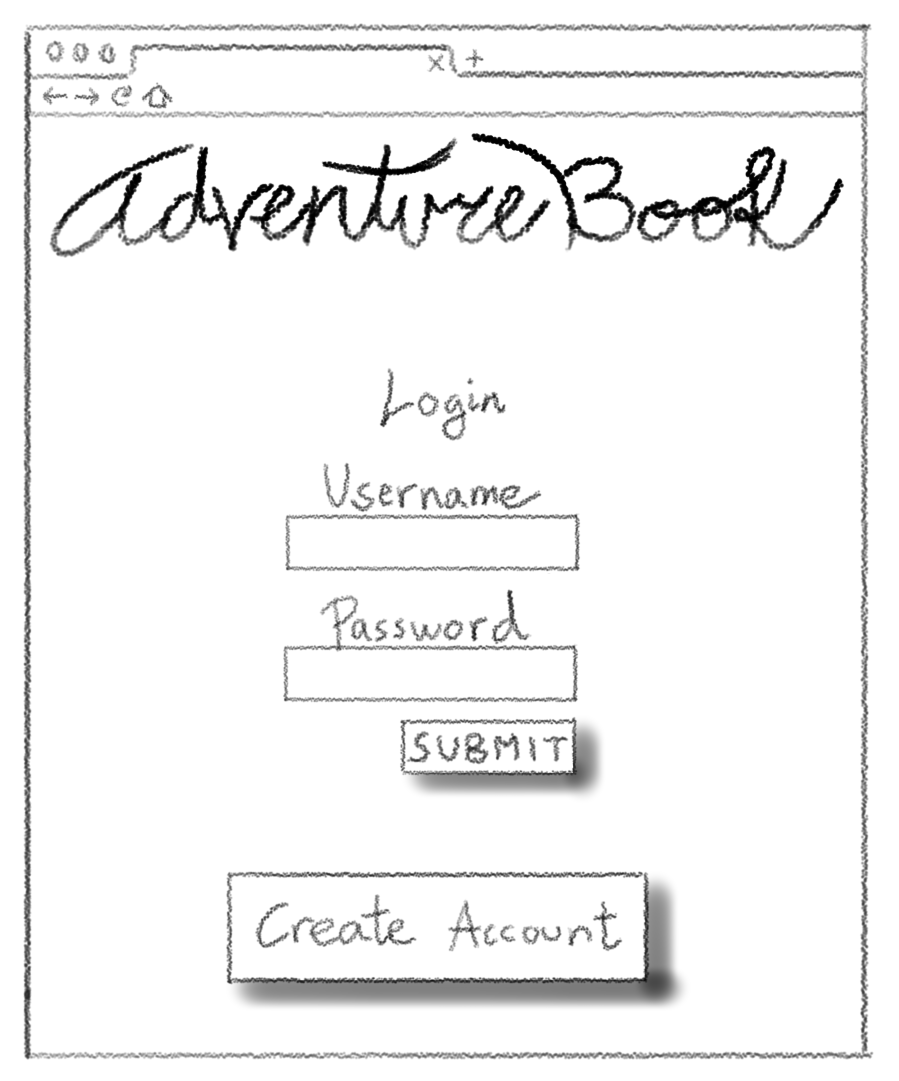 Adventure Book
Login
Username
Password
SUBMIT
Create Account